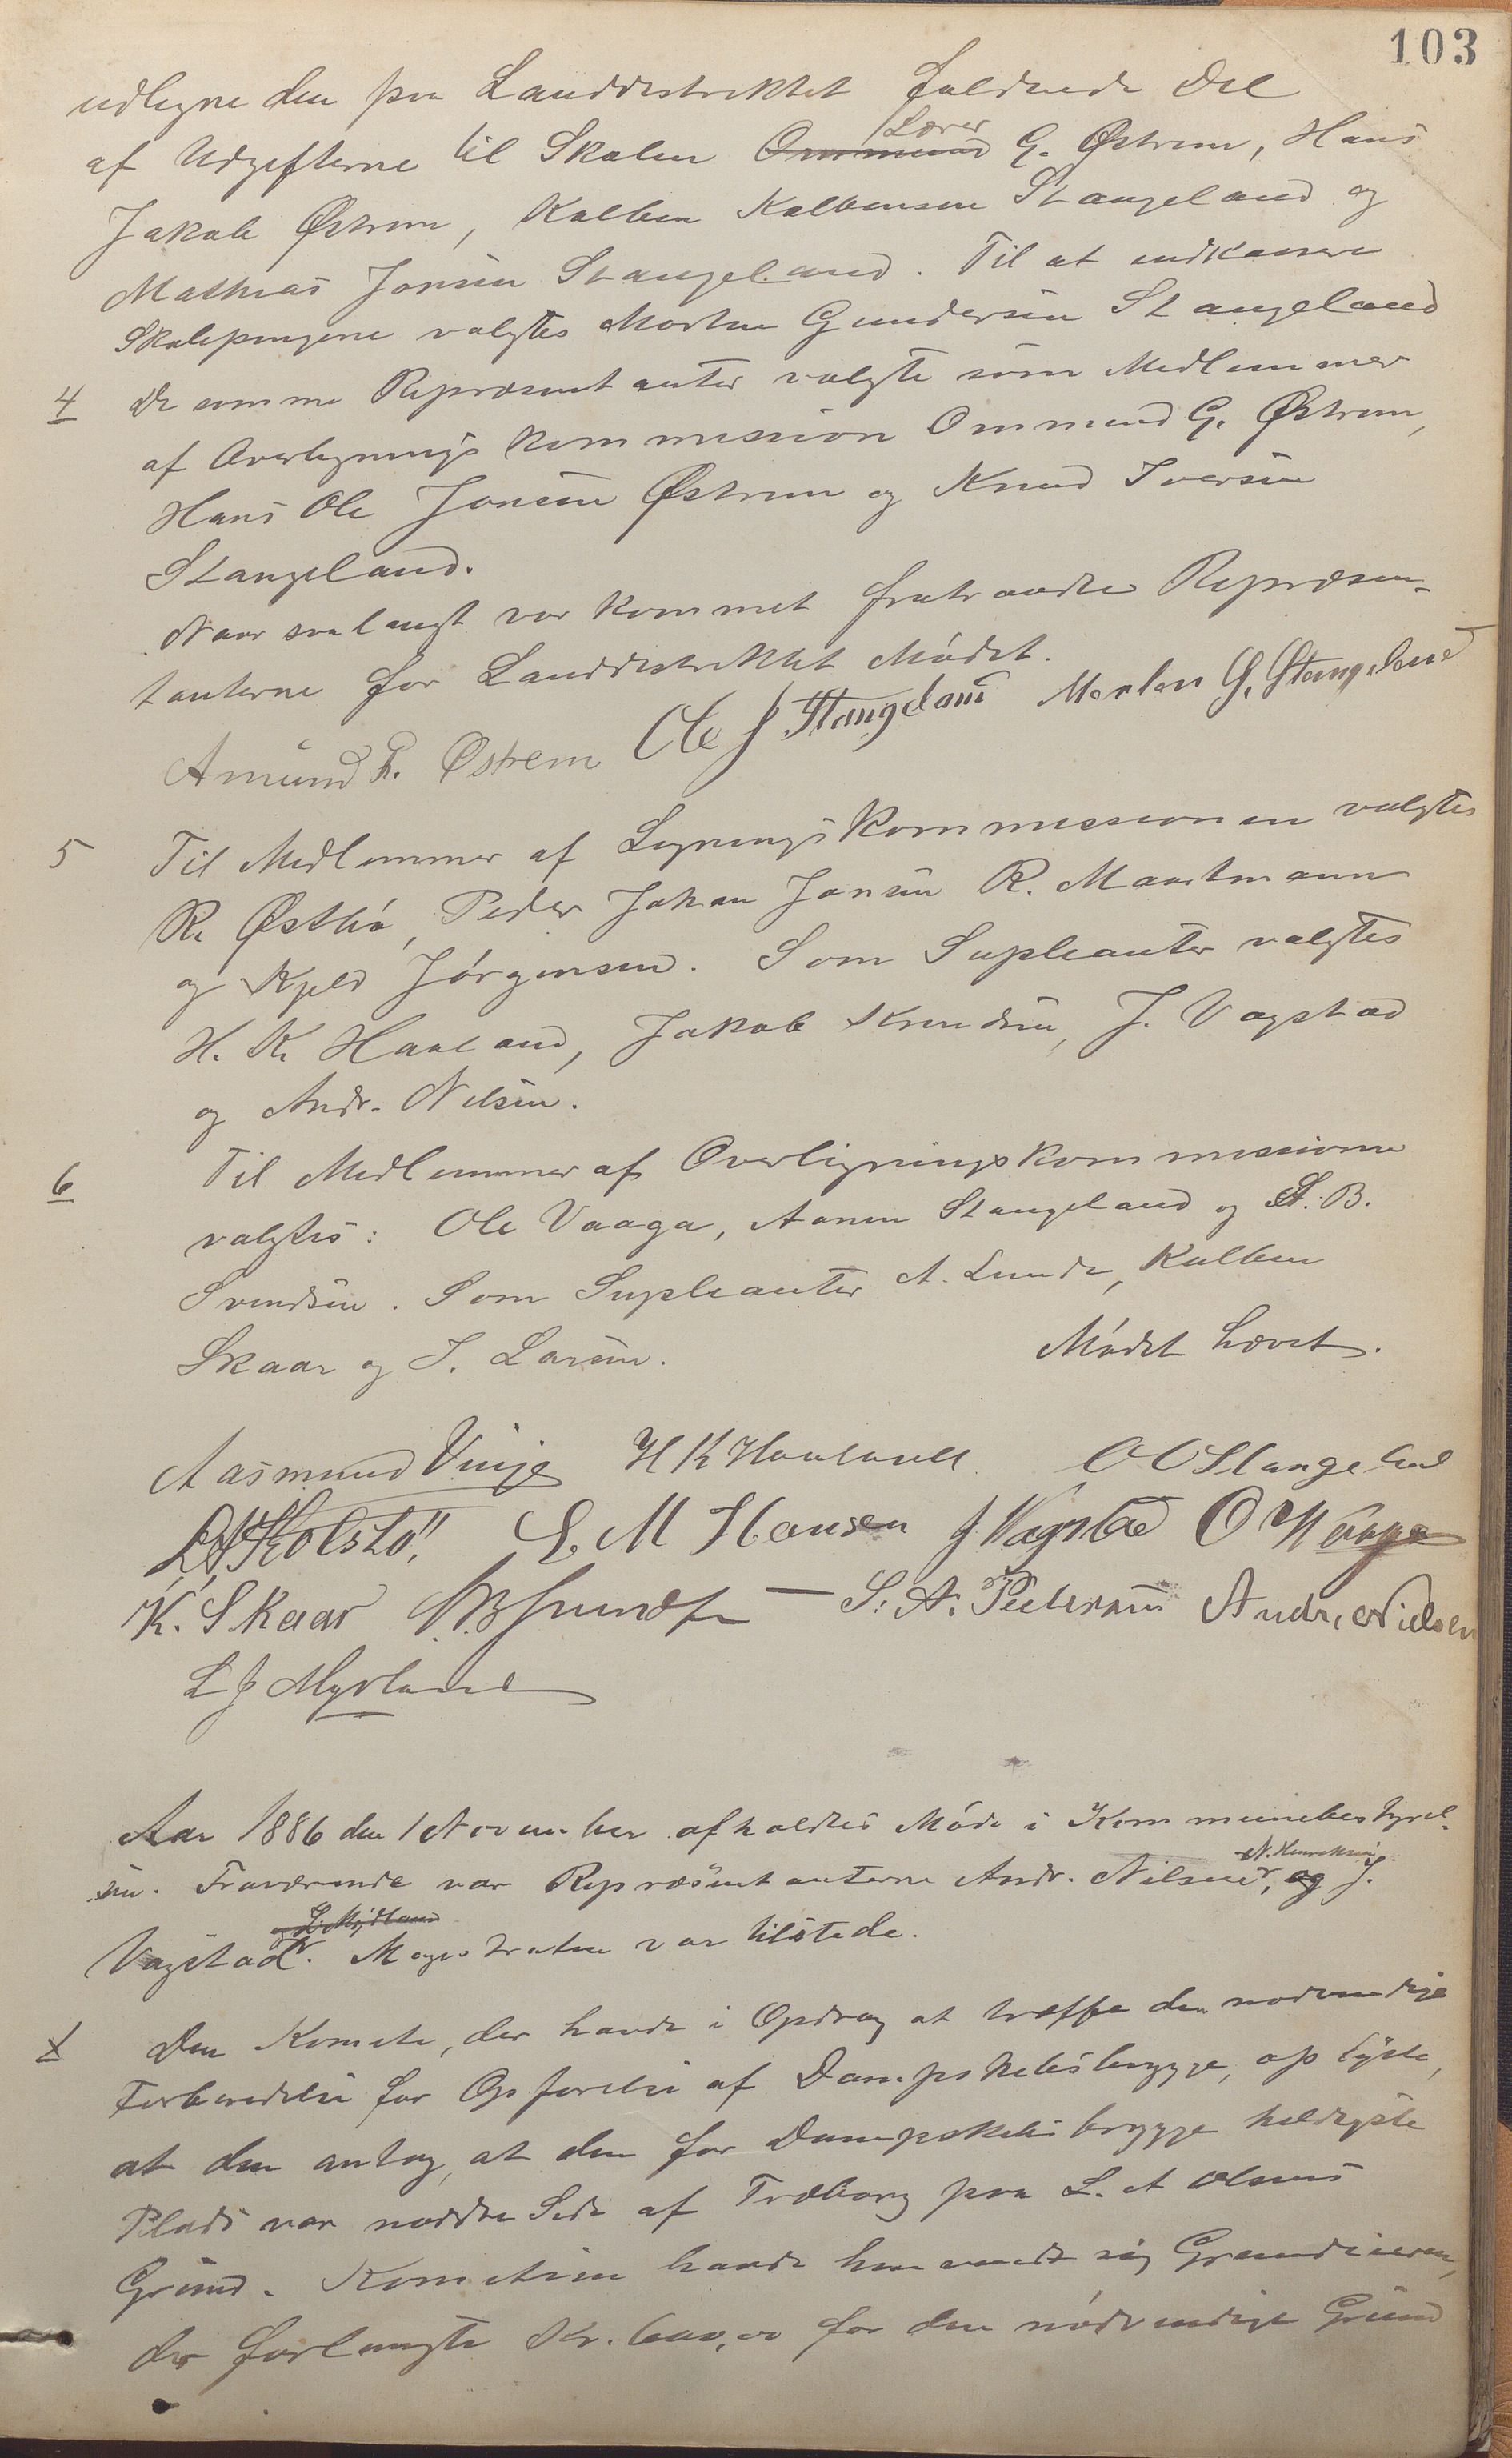 103
udligne den paa Landdistriktet faldende Del
af Udgifterne til Skolen Ommund Lærer G. Østrem, Hans
Jakob Østrem, Kolben Kolbensen Stangeland og
Mathias Jonsen Stangeland. Til at indkassere
Skolepengene valgtes Morten Gundersen Stangeland
4 De samme Repræsentanter valgte som Medlemmer
af Overlignings Kommission Ommund G. Østrem,
Hans Ole Jonsen Østrem og Knud Iversen
Stangeland.
Naar saa langt var kommet fratraadte Repræsen-
tanterne for Landdistriktet Mødet.
Amund G. Østrem Ole J. Stangeland Morten G. Stangeland
5 Til Medlemmer af Ligningskommissionen valgtes
R. Østbø, Peder Johan Jansen R. Maartmann
og Kjeld Jørgensen. Som Supleanter valgtes
H. K. Haaland, Jakob Knudsen, J. Vagstad
og Andr. Nilsen.
6 Til Medlemmer af Overligningskommissionen
valgtes: Ole Vaaga, Aanen Stangeland og S. B.
Svendsen. Som Supleanter A. Lunde, Kolben
Skaar og J. Larsen. Mødet hævet.
Aasmund Vinje H K Haaland O O Stangeland
Kolstö. M Hansen J Vagstad O Waage
K. Skaar S B Svendsen S. A. Pedersen Andr. Nielsen
L J Myvland
Aar 1886 den 1 November afholdtes Møde i Kommunebestyrel-
sen. Fraværende var Repræsentanterne Andr. Nilsen, N. Henriksen og J.
Vagstad og L. Mydland. Magistraten var tilstede.
1 Den Komite, der havde i Opdrag at træffe den nødvendige
Forberedelse for Opførelse af Dampskibsbrygge, oplyste,
at den antog, at den for Dampskibsbrygge heldigste
Plads var nordre Side af Træborg paa L. A Olsens
Grund. Komiteen havde henvendt sig Grundeieren,
der forlangte Kr. 600,00 for den nødvendige Grund